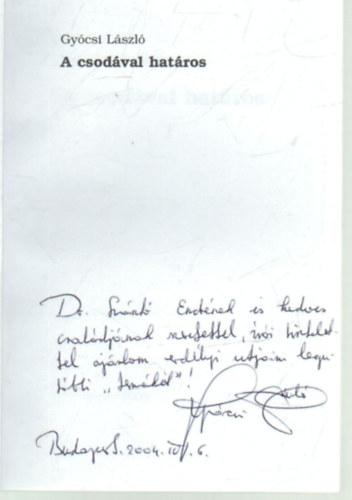 Gyócsi László
A csodával határos
Dr. Szántó Endrének és kedves
családjának szeretettel, írói tisztelet-
tel ajánlom erdélyi utjaim legu-
tóbbi „témáját"!
Gyócsi László
Budapest, 2004. IV. 6.